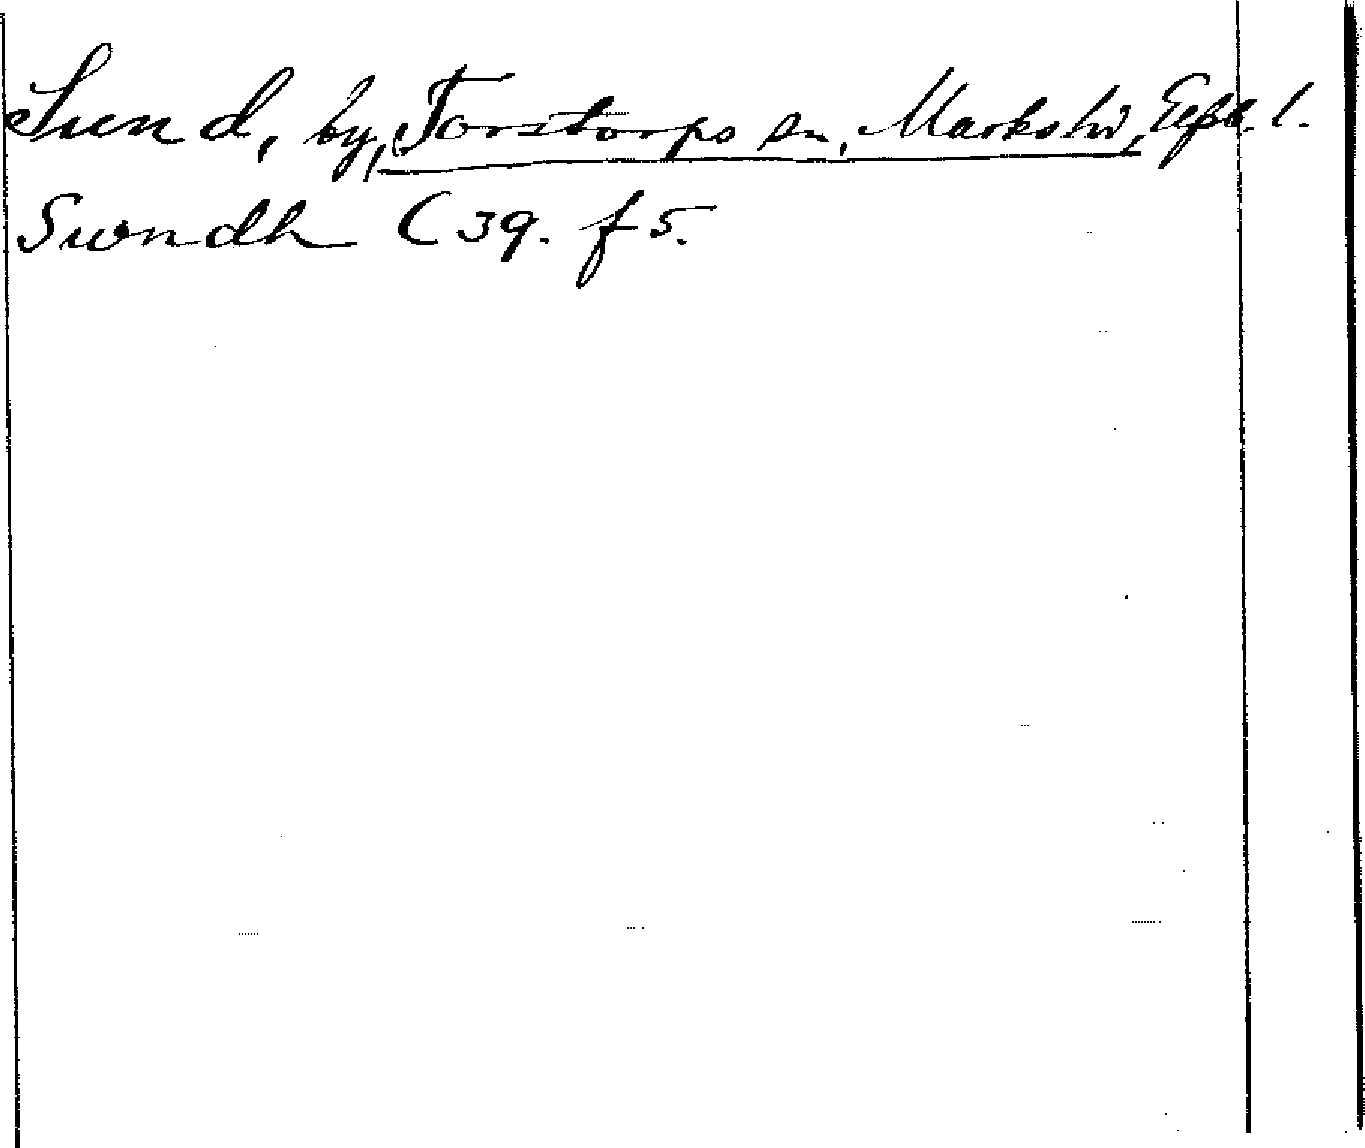 Sund, by, Torstorps sn, Marks hd, Elfsb. l.
Swndh C 39. f 5.